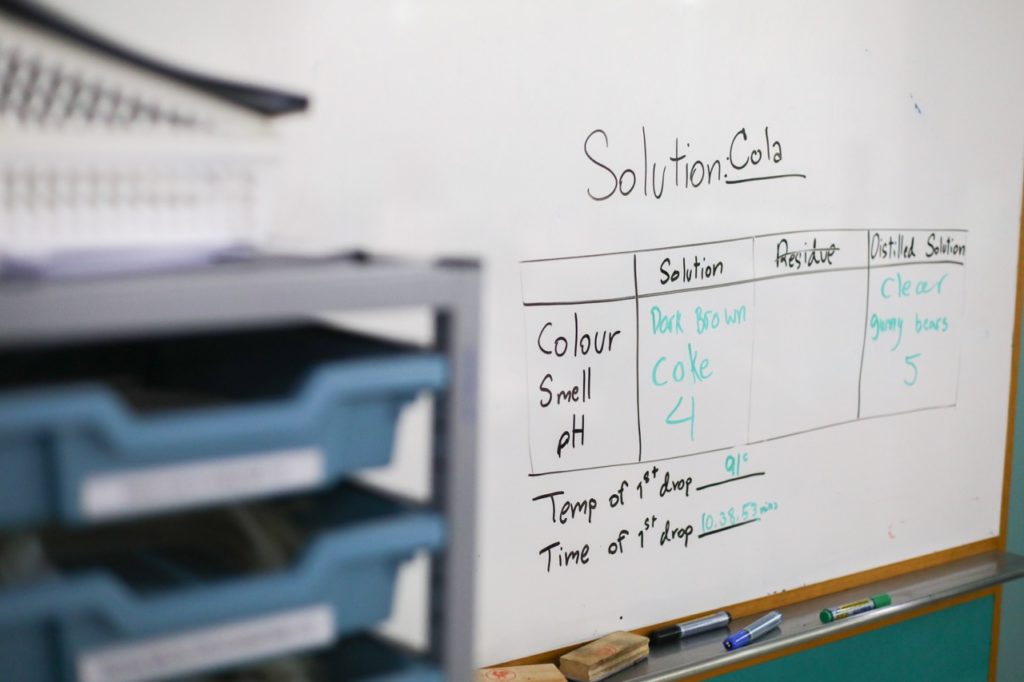 Solution: Cola
Solution Residue Distilled Solution
Colour Dark Brown Clear
Smell Coke gumy bears
pH 4 5
Temp of 1st drop 91°
Time of 1st drop 10.38.53 mins